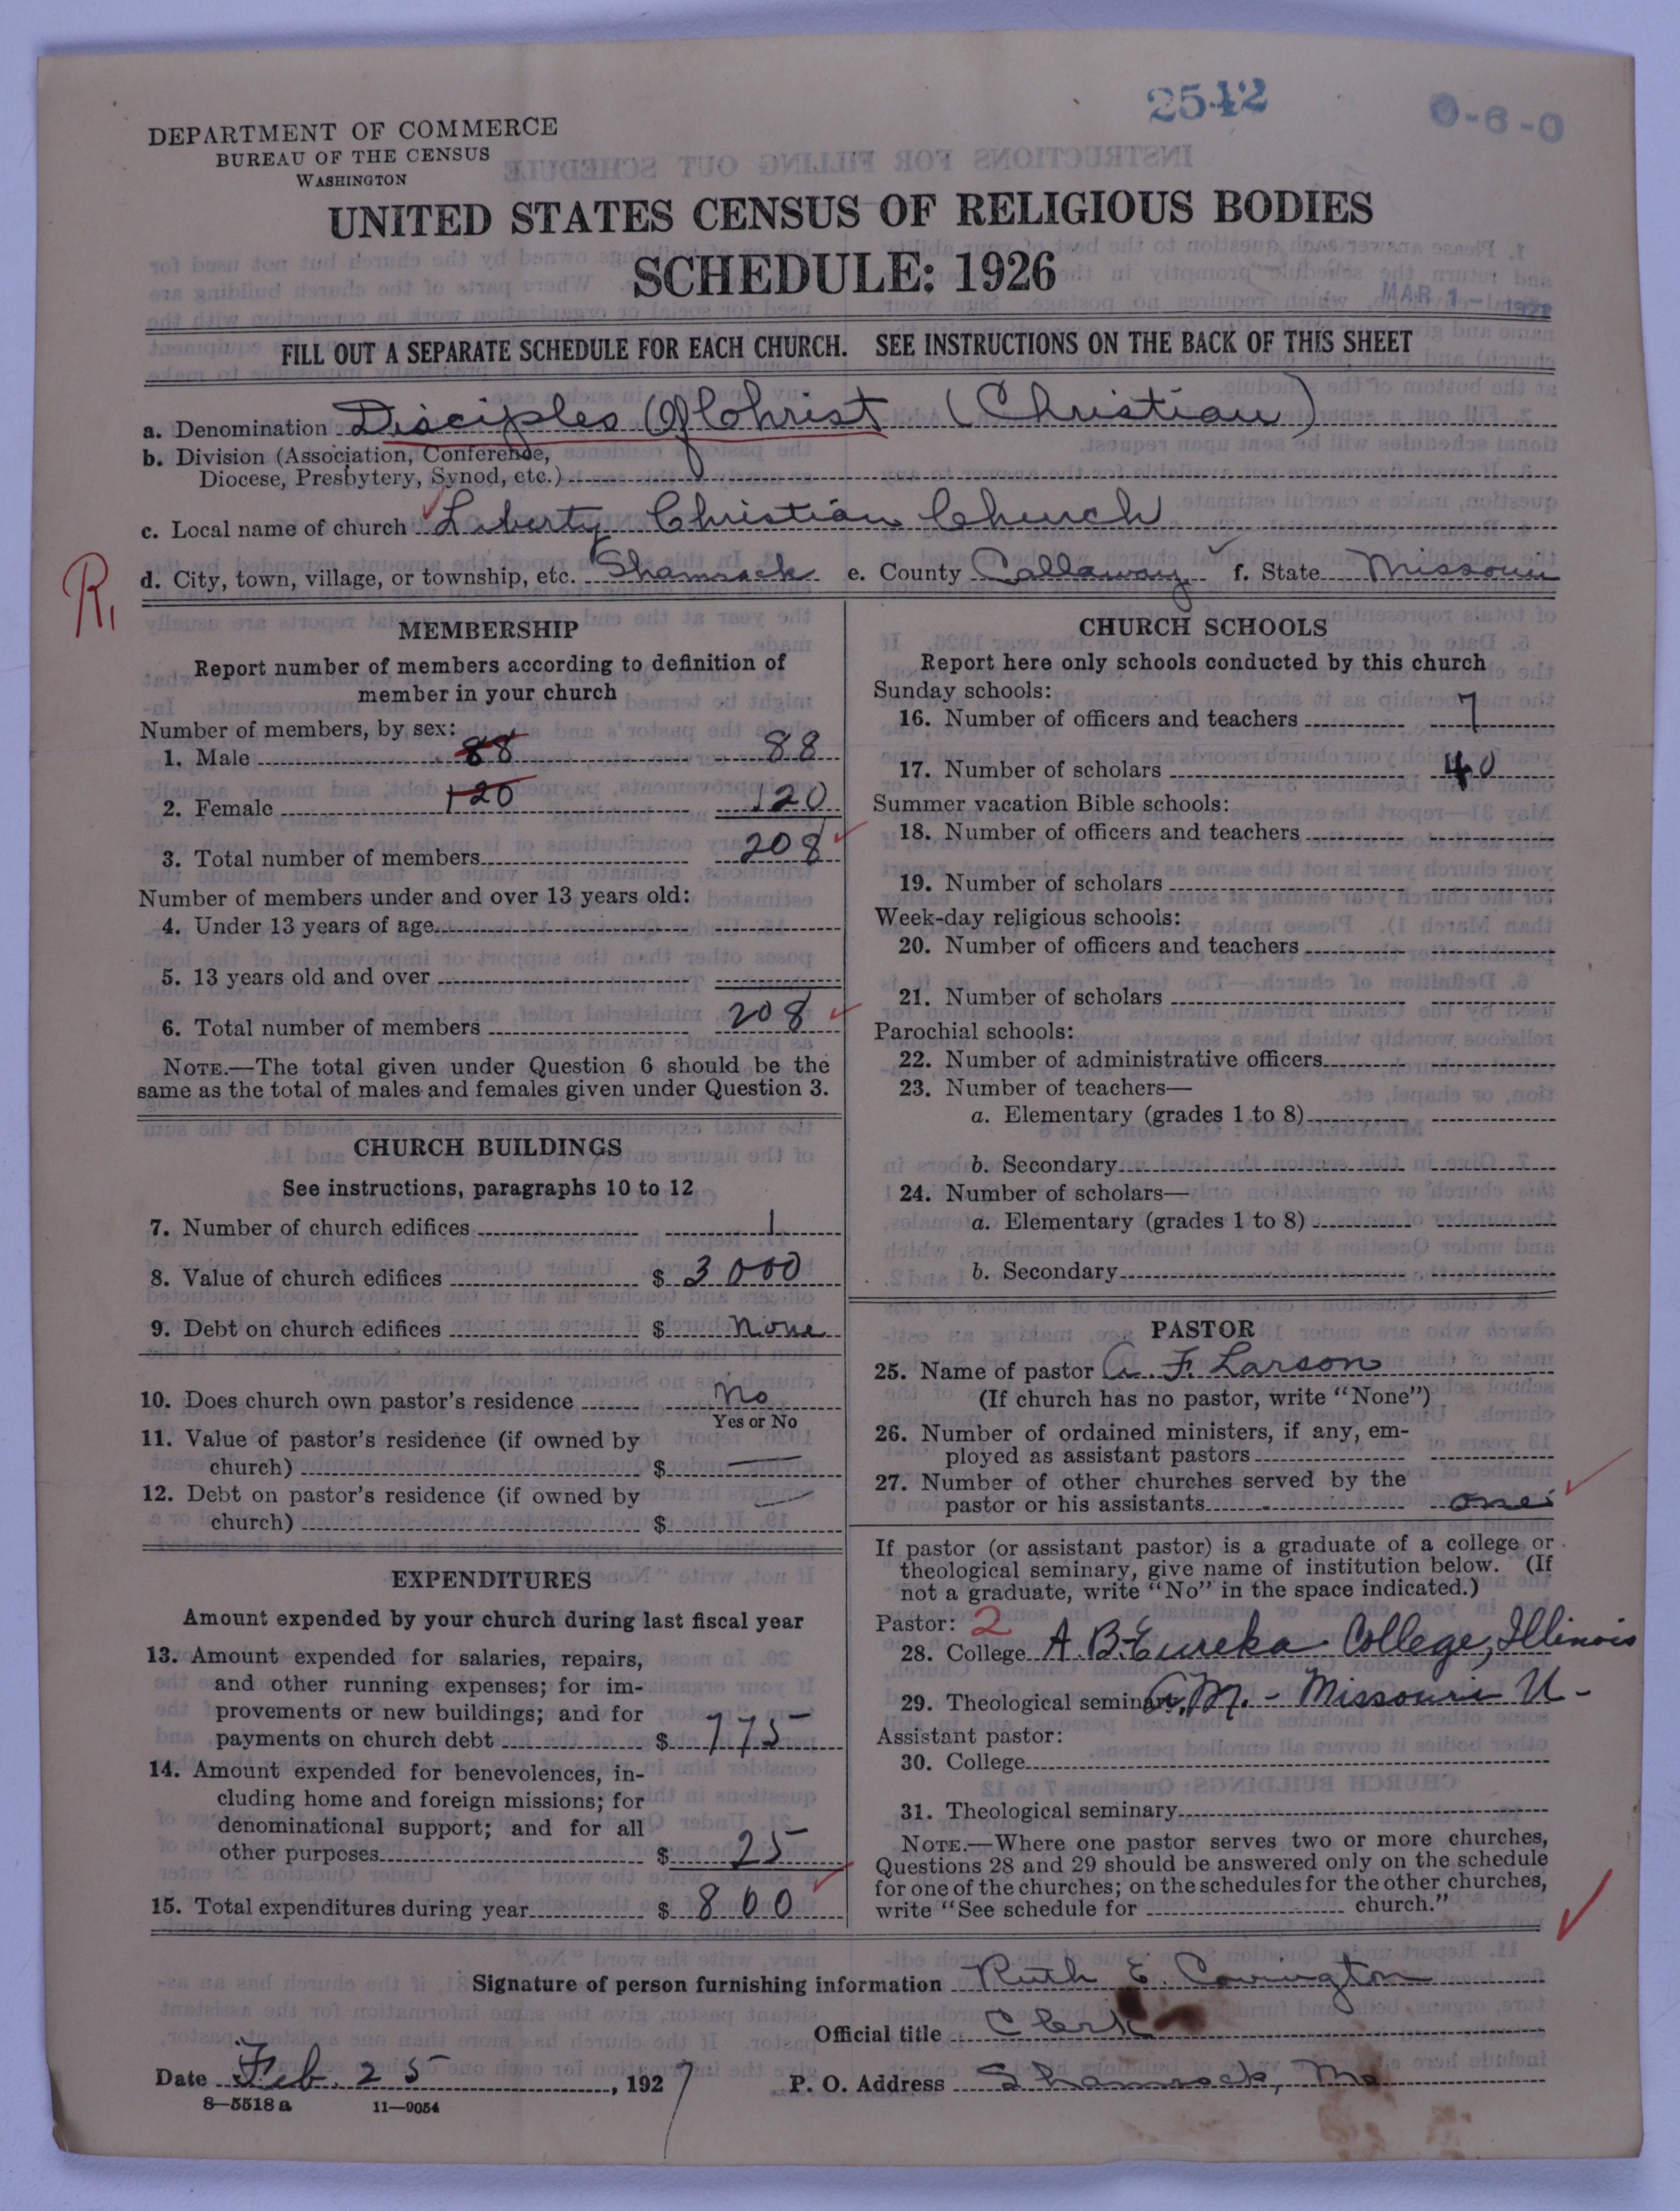 2542
0-6-0
DEPARTMENT OF COMMERCE
BUREAU OF THE CENSUS
WASHINGTON
UNITED STATES CENSUS OF RELIGIOUS BODIES
SCHEDULE: 1926
MAR 1 - 1927
FILL OUT A SEPARATE SCHEDULE FOR EACH CHURCH. SEE INSTRUCTIONS ON THE BACK OF THIS SHEET
a. Denomination Disciples Of Christ (Christian)
b. Division (Association, Conference,
Diocese, Presbytery, Synod, etc.)
c. Local name of church Liberty Christian Church
R1
d. City, town, village, or township, etc. Shamrock e. County Callaway f. State Missouri
MEMBERSHIP
Report number of members according to definition of
member in your church
Number of members, by sex:
1. Male 88 88
2. Female 120 120
3. Total number of members 208
Number of members under and over 13 years old:
4. Under 13 years of age
5. 13 years old and over
6. Total number of members 208
NOTE.—The total given under Question 6 should be the
same as the total of males and females given under Question 3.
CHURCH BUILDINGS
See instructions, paragraphs 10 to 12
7. Number of church edifices 1
8. Value of church edifices $ 3000
9. Debt on church edifices $ None
10. Does church own pastor's residence No
Yes or No
11. Value of pastor's residence (if owned by
church) $ —
12. Debt on pastor's residence (if owned by
church) $ —
EXPENDITURES
Amount expended by your church during last fiscal year
13. Amount expended for salaries, repairs,
and other running expenses; for im-
provements or new buildings; and for
payments on church debt $ 775
14. Amount expended for benevolences, in-
cluding home and foreign missions; for
denominational support; and for all
other purposes $ 25
15. Total expenditures during year $ 800
CHURCH SCHOOLS
Report here only schools conducted by this church
Sunday schools:
16. Number of officers and teachers 7
17. Number of scholars 40
Summer vacation Bible schools:
18. Number of officers and teachers
19. Number of scholars
Week-day religious schools:
20. Number of officers and teachers
21. Number of scholars
Parochial schools:
22. Number of administrative officers
23. Number of teachers—
a. Elementary (grades 1 to 8)
b. Secondary
24. Number of scholars—
a. Elementary (grades 1 to 8)
b. Secondary
PASTOR
25. Name of pastor A. F. Larson
(If church has no pastor, write "None")
26. Number of ordained ministers, if any, em-
ployed as assistant pastors
27. Number of other churches served by the
pastor or his assistants one
If pastor (or assistant pastor) is a graduate of a college or
theological seminary, give name of institution below. (If
not a graduate, write "No" in the space indicated.)
Pastor: 2
28. College A.B. Eureka College, Illinois
29. Theological seminary A.M. - Missouri U -
Assistant pastor:
30. College
31. Theological seminary
NOTE.—Where one pastor serves two or more churches,
Questions 28 and 29 should be answered only on the schedule
for one of the churches; on the schedules for the other churches,
write "See schedule for church."
Signature of person furnishing information Ruth E. Covington
Official title Clerk
Date Feb. 25, 1927 P. O. Address Shamrock, Mo
8—5518 a 11—9054